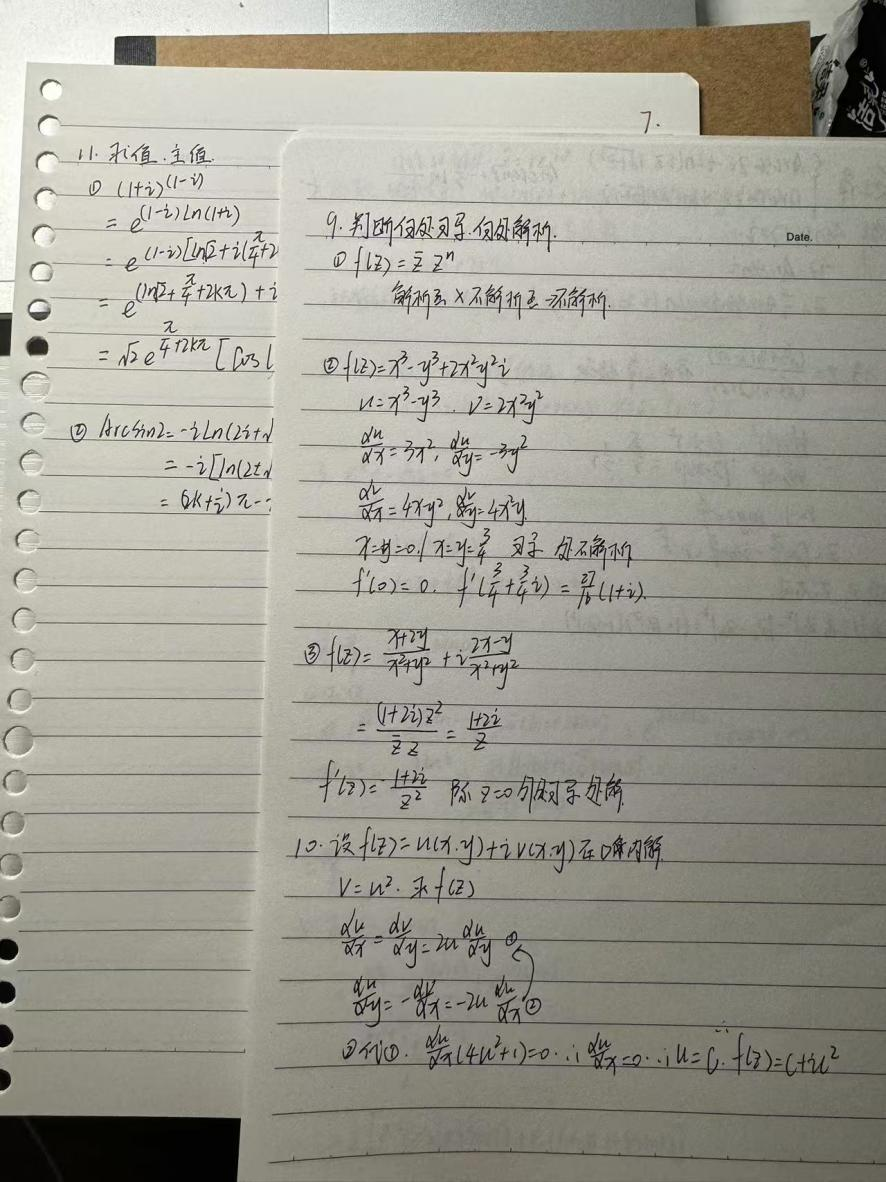 7.
11. 求值.主值.
① (1+i)^(1-i)
= e^(1-i)Ln(1+i)
= e^(1-i)[ln√2+i(π/4+2
= e^(ln√2+π/4+2kπ)+i
= √2 e^π/4+2kπ [Cos(
② Arcsin2=-iLn(2i+√
= -i[ln(2±√
= (2k+½)π-i
Date.
9. 判断何处可导.何处解析.
① f(z)=z̄ zⁿ
解析函×不解析函→不解析.
② f(z)=x³-y³+2x²y²i
u=x³-y³. v=2x²y²
du/dx=3x², du/dy=-3y²
dv/dx=4xy², dv/dy=4x²y.
x=y=0./x=y=3/4 可导 处不解析
f'(0)=0. f'(3/4+3/4i)=27/16(1+i).
③ f(z)=x+2y/x²+y²+i2x-y/x²+y²
=(1+2i)z̄/z̄z=1+2i/z
f'(z)=-1+2i/z² 除z=0外处可导处解
10. 设f(z)=u(x.y)+iv(x.y)在D域内解.
V=u². 求f(z)
du/dx=dv/dy=2u du/dy ①
du/dy=-dv/dx=-2u du/dx ②
②代①. du/dx(4u²+1)=0∴du/dx=0∴u=C.∴f(z)=C+iC²